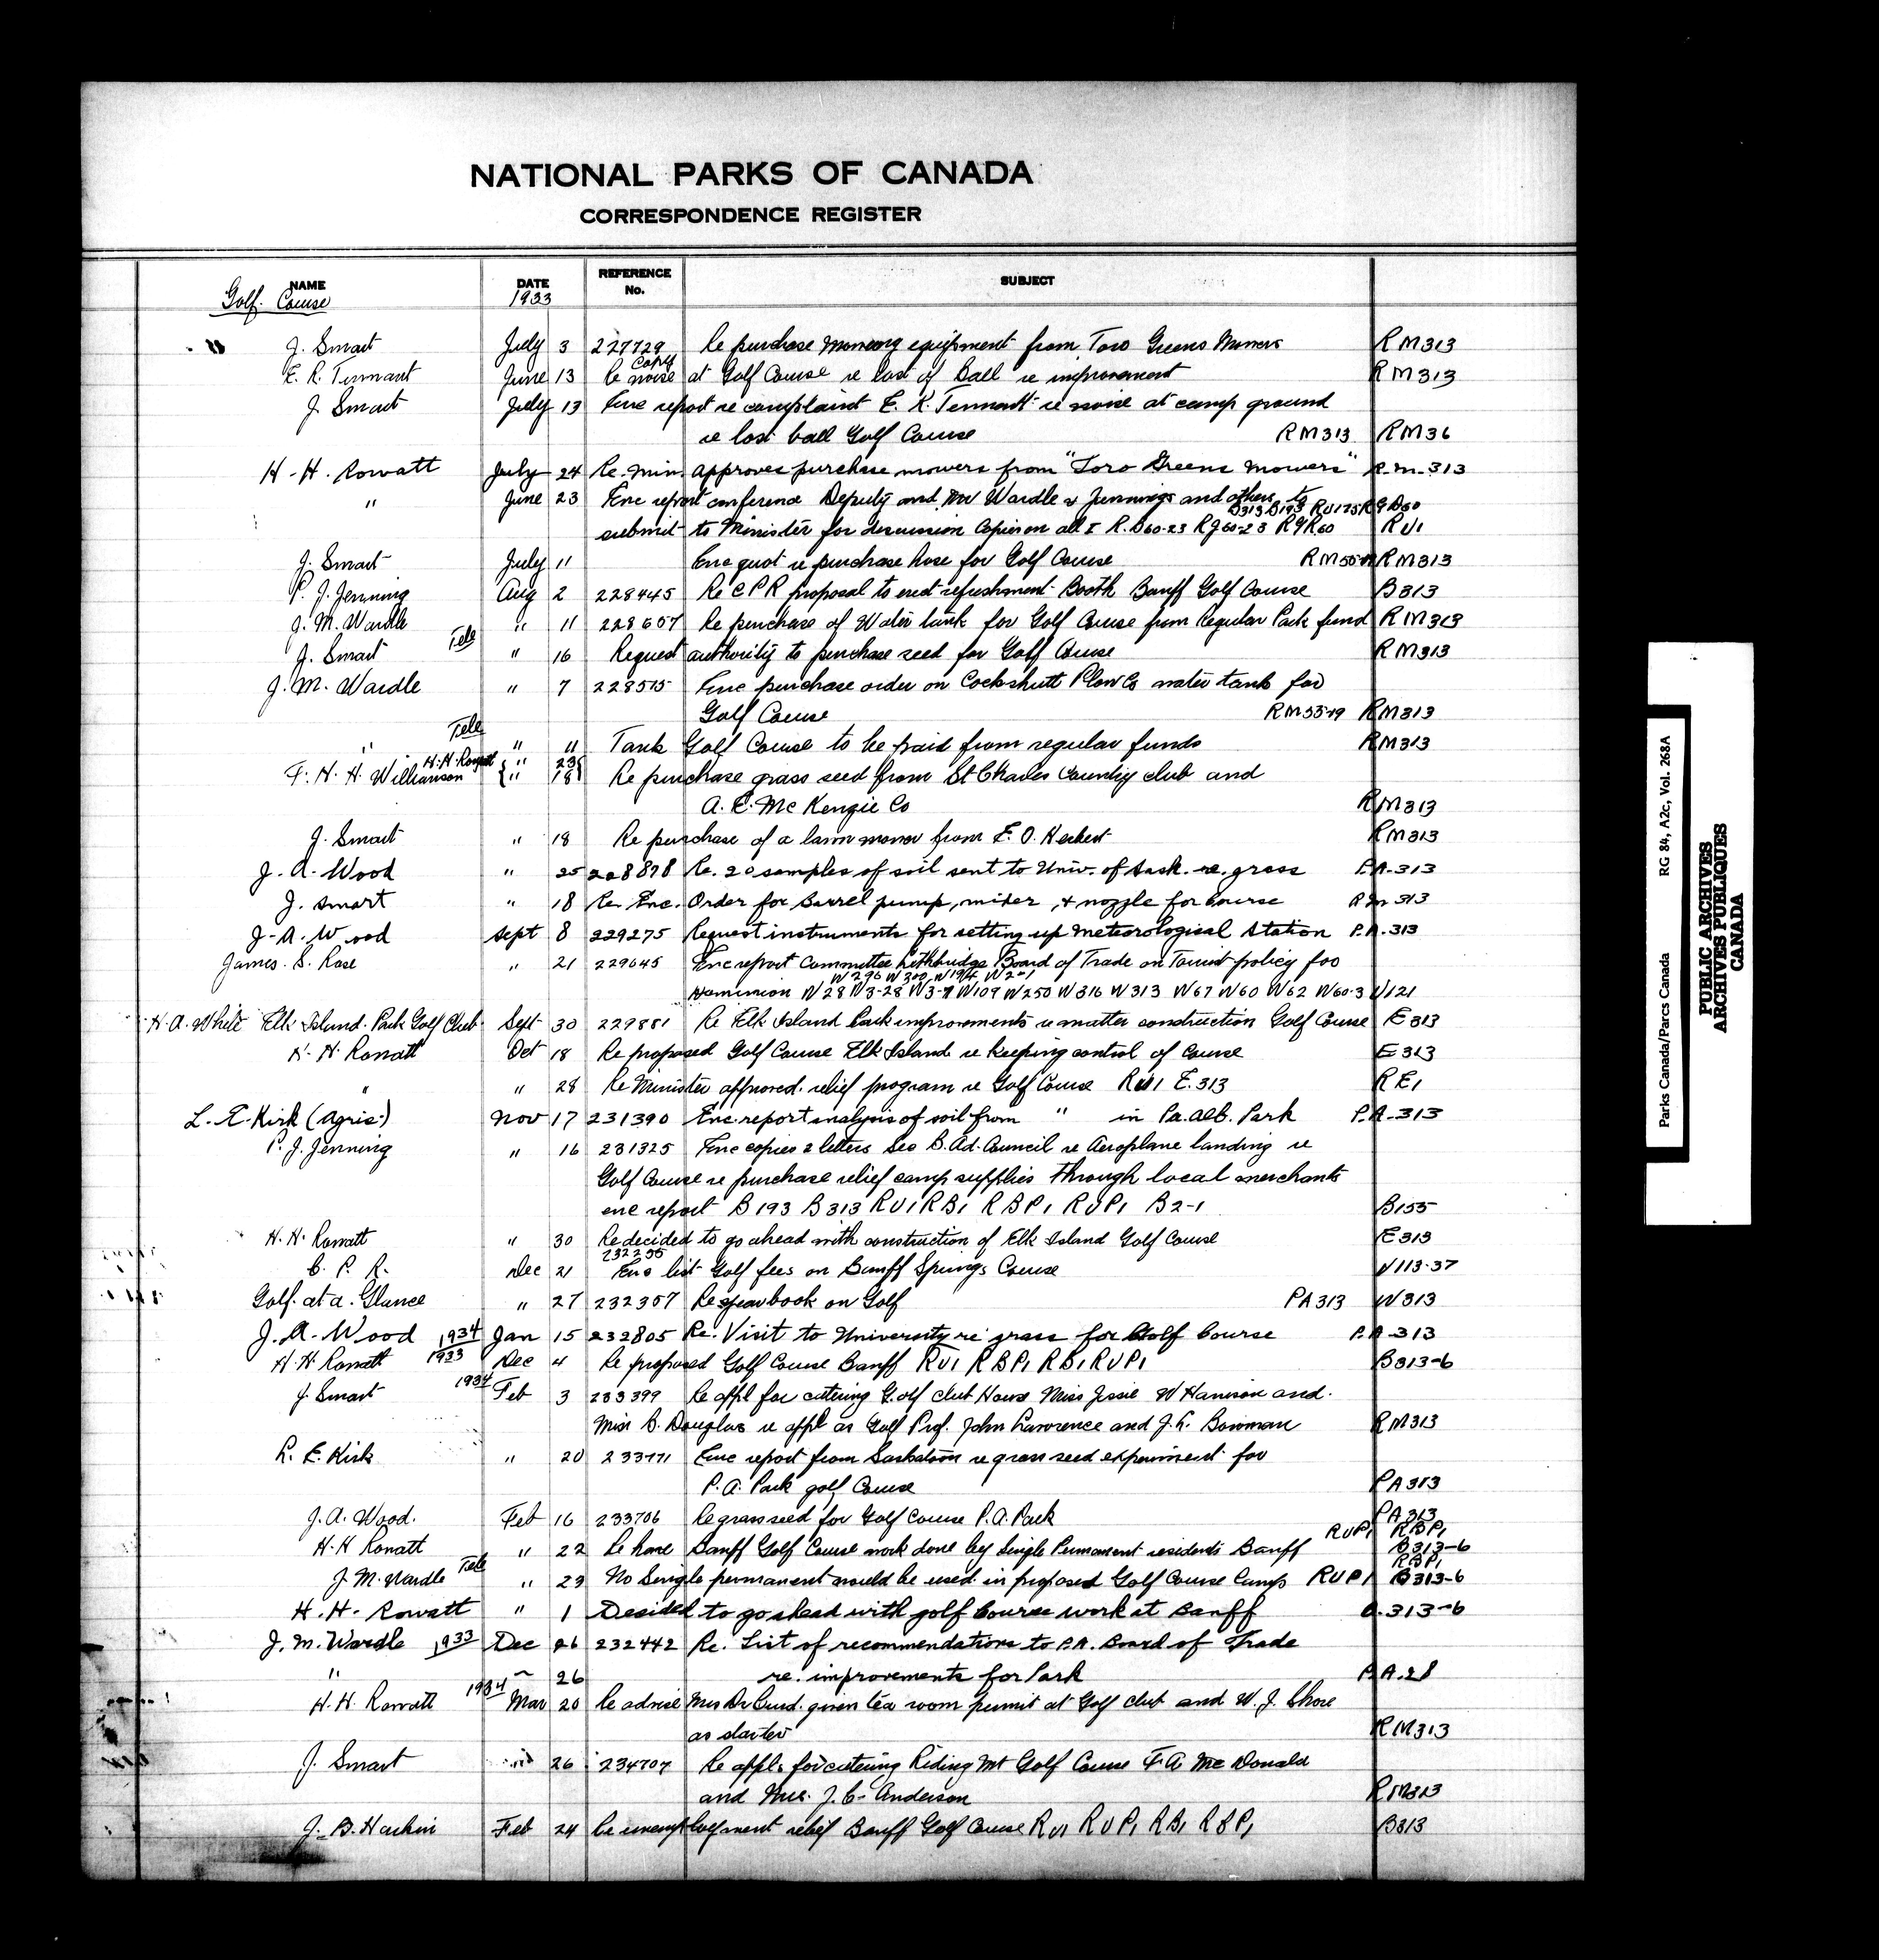 NATIONAL PARKS OF CANADA
CORRESPONDENCE REGISTER
NAME DATE REFERENCE No. SUBJECT
Golf Course 1933
" J. Smart July 3 227729 Re purchase equipment from Toro Greens Mowers RM313
Copy
E. R. Tennant June 13 Re noise at Golf Course re lost of Ball re improvement RM313
J. Smart July 13 Enc report re complaint E. R. Tennant re noise at camp ground
re lost ball Golf Course RM313 RM36
H. H. Rowatt July 24 Re. Min. approves purchase mowers from "Toro Greens Mowers" R.M.313
" June 23 Enc report conference Deputy and Mr Wardle & Jennings and others to
B313 B193 RU125 RGB60
submit to Minister for discussion Copies on all I R.B60-23 RJ60-23 RYR60 RU1
J. Smart July 11 Enc quot re purchase hose for Golf Course RM313
P. J. Jenning Aug 2 228445 Re C P R proposal to erect refreshment Booth Banff Golf Course B313
J. M. Wardle " 11 228607 Re purchase of Water tank for Golf Course from Regular Park fund RM313
J. Smart Tele " 16 Request authority to purchase seed for Golf Course RM313
J. M. Wardle " 7 228515 Enc purchase order on Cockshutt Plow Co water tank for
Golf Course RM55-19 RM313
" Tele " 11 Tank Golf Course to be paid from regular funds RM313
H. H. Rowatt " 23
F. H. H. Williamson " 18 Re purchase grass seed from St Charles Country club and
A. E. McKenzie Co RM313
J. Smart " 18 Re purchase of a lawn mower from E. O. RM313
J. A. Wood " 25 228878 Re. 20 samples of soil sent to Univ. of Sask. re. grass P.A-313
J. Smart " 18 Re Enc. Order for Barrel pump, mixer, & nozzle for Course RM 313
J. A. Wood Sept 8 229275 Request instruments for setting up Meteorological Station P.A.313
James S. Rose " 21 229645 Enc report Committee Lethbridge Board of Trade on Tourist policy for
W296 W300 W194 W201
Dominion W28 W3-28 W3-7 W109 W250 W316 W313 W67 W60 W62 W60-3 W121
H. A. White Elk Island Park Golf Club Sept 30 229881 Re Elk Island Park improvements re matter construction Golf Course E313
H. H. Rowatt Oct 18 Re proposed Golf Course Elk Island re keeping control of Course E313
" " 28 Re Minister approved relief program re Golf Course RU1 E.313 RE1
L. E. Kirk (Agric.) Nov 17 231390 Enc. report analysis of soil from " in Pa. alb. Park P.A-313
P. J. Jenning " 16 231325 Enc copies 2 letters Sec B. Ad. Council re Aeroplane landing re
Golf Course re purchase relief camp supplies through local merchants
enc report B193 B313 RU1 RB1 RBP1 RUP1 B2-1 B155
H. H. Rowatt " 30 Re decided to go ahead with construction of Elk Island Golf Course E313
232255
C. P. R. Dec 21 Enc list Golf fees on Banff Springs Course W113-37
Golf at a Glance " 27 232357 Re year book on Golf PA313 W313
J. A. Wood 1934 Jan 15 232805 Re. Visit to University re grass for Golf Course P.A-313
H. H. Rowatt 1933 Dec 4 Re proposed Golf Course Banff RU1 RBP1 RB1 RUP1 B313-6
J. Smart 1934 Feb 3 233399 Re appl for catering Golf Club House Miss Jessie W Harrison and
Miss B. Douglas re appl as Golf Prof. John Lawrence and J. L. Bowman RM313
L. E. Kirk " 20 233771 Enc report from Saskatoon re grass seed experiment for
P. A. Park golf Course PA313
J. A. Wood. Feb 16 233706 Re grass seed for Golf Course P. A. Park PA313
RUP1 RBP1
H. H. Rowatt " 22 Re have Banff Golf Course work done by Single Permanent residents Banff B313-6
RBP1
J. M. Wardle Tele " 23 No Single permanent would be used in proposed Golf Course Camp RUP1 B313-6
H. H. Rowatt " 1 Decided to go ahead with golf Course work at Banff B.313-6
J. M. Wardle 1933 Dec 26 232442 Re. List of recommendations to P.A. Board of Trade
" 26 re. improvements for Park P.A.28
H. H. Rowatt 1934 Mar 20 Re advise Mrs given tea room permit at Golf club and W. J. Shore
as starter RM313
J. Smart 26 234707 Re appl. for catering Riding Mt Golf Course F. A. McDonald
and Mrs. J. C. Anderson RM313
J. B. Harkin Feb 24 Re unemployment relief Banff Golf Course RU1 RUP1 RB1 RBP1 B313
Parks Canada/Parcs Canada RG 84, A2c, Vol. 268A
PUBLIC ARCHIVES
ARCHIVES PUBLIQUES
CANADA